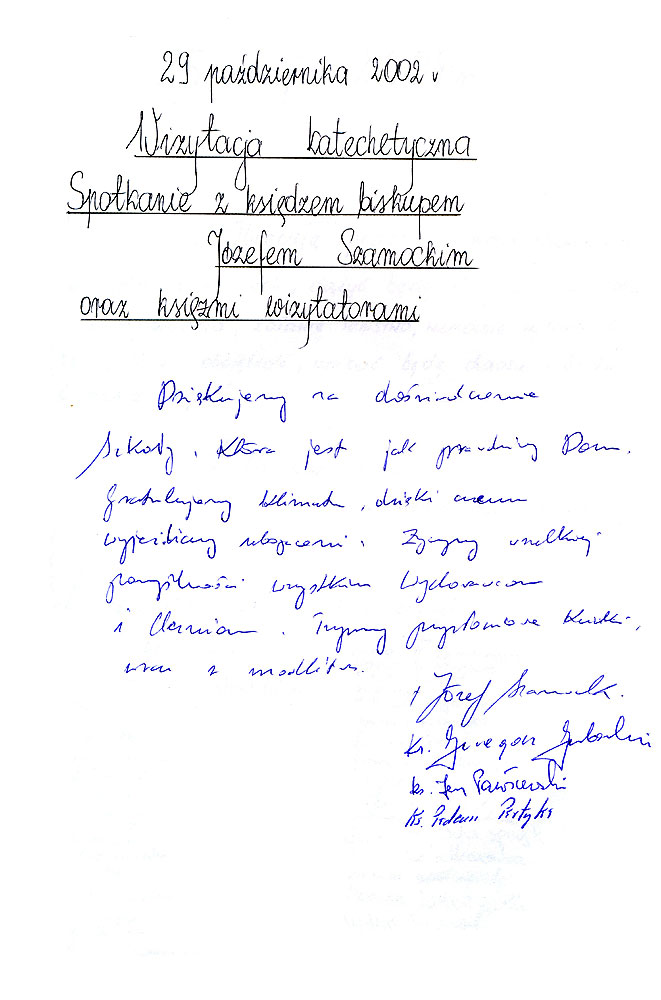 29 października 2002 r
Wizytacja katechetyczna
Spotkanie z księdzem biskupem
Józefem Szamockim
oraz księżmi wizytatorami
Dziękujemy za doświadczenie
Szkoły, która jest jak prawdziwy Dom.
Gratulujemy klimatu, dzięki czemu
wyjeżdżamy ubogaceni. Życzymy wszelkiej
pomyślności wszystkim Wychowawcom
i Uczniom. Trzymamy
wraz z modlitwą.
+ Józef Szamocki.
Ks. Grzegorz
ks. Jan
Ks. Adam